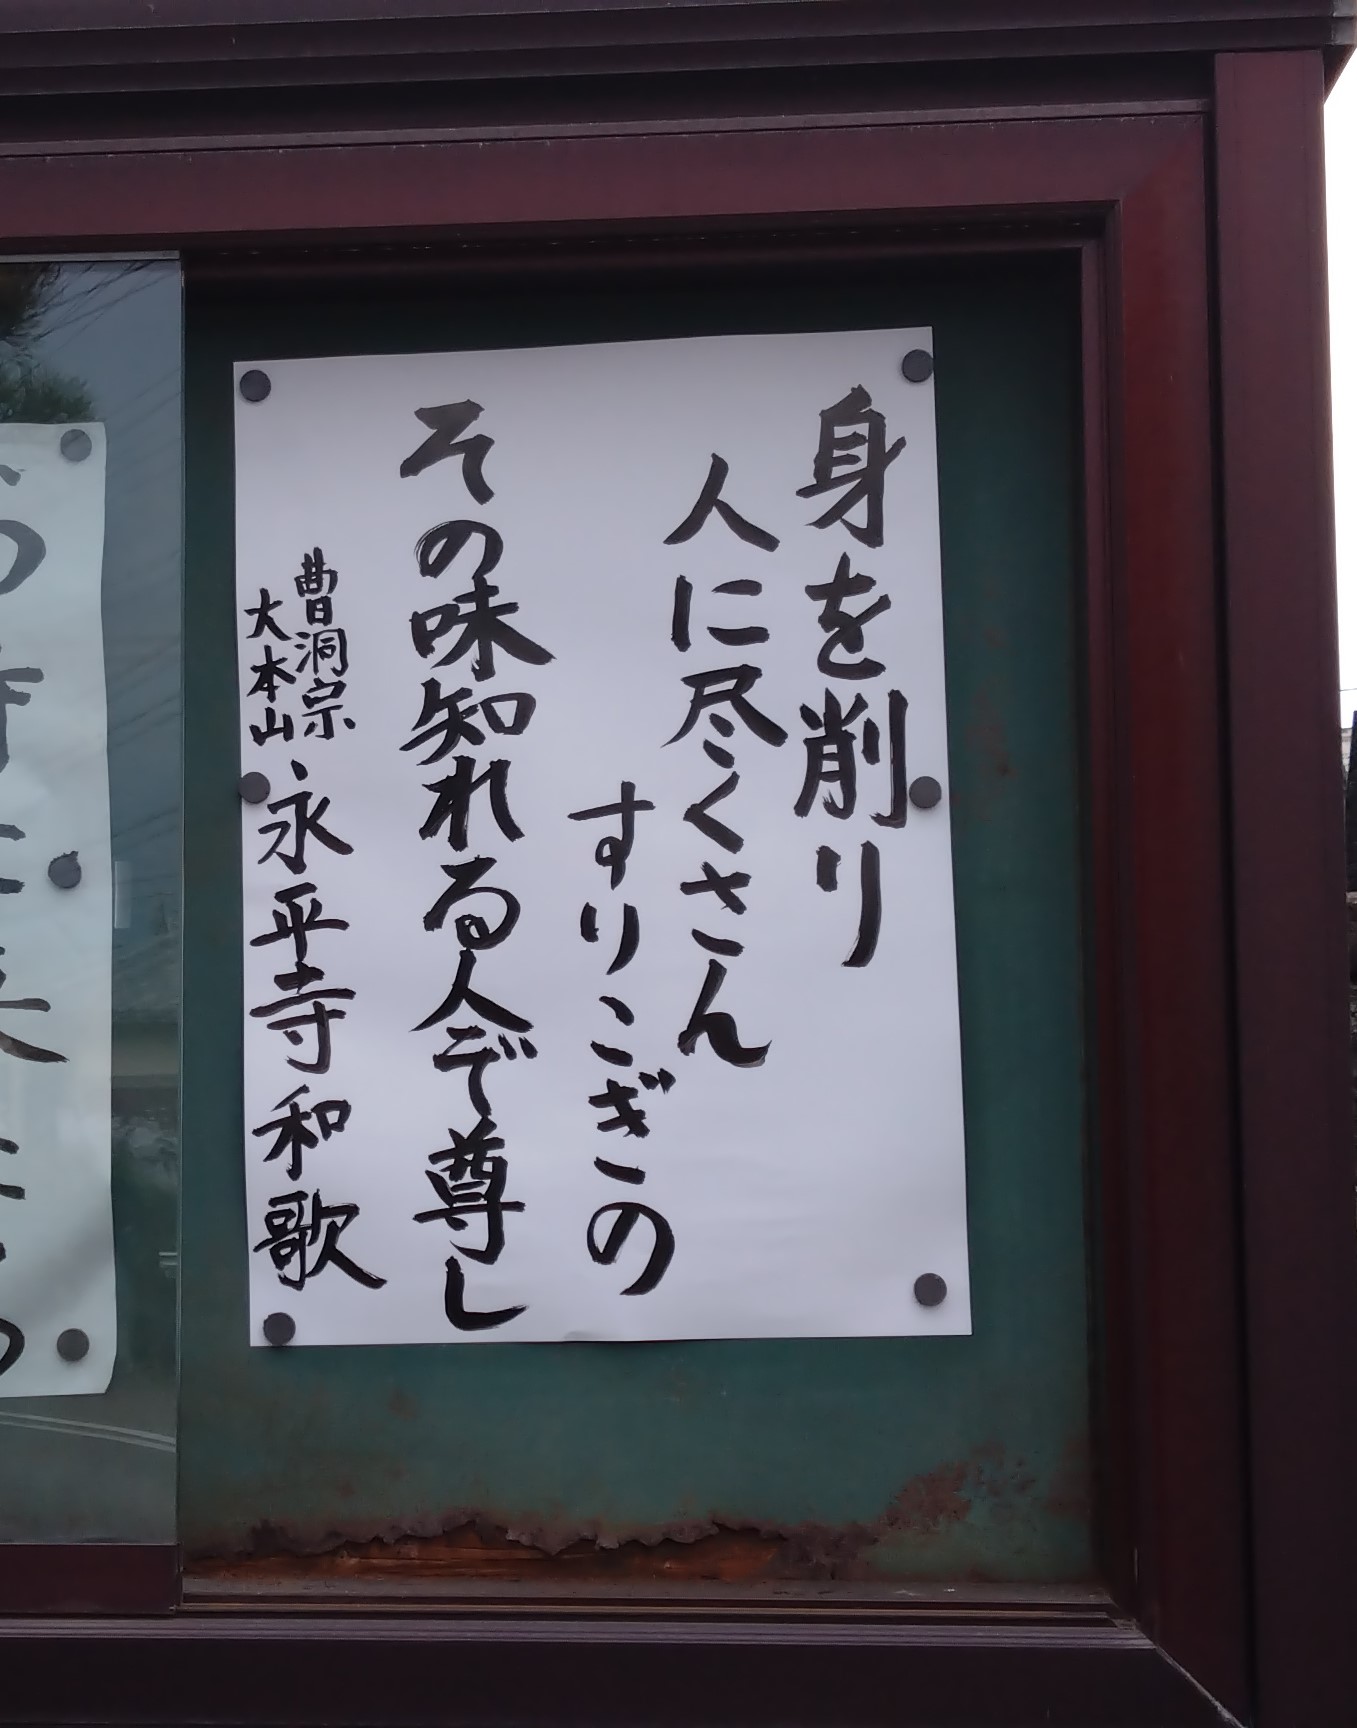 身を削り
人に尽くさん
すりこぎの
その味知れる人ぞ尊し
曹洞宗
大本山
永平寺和歌